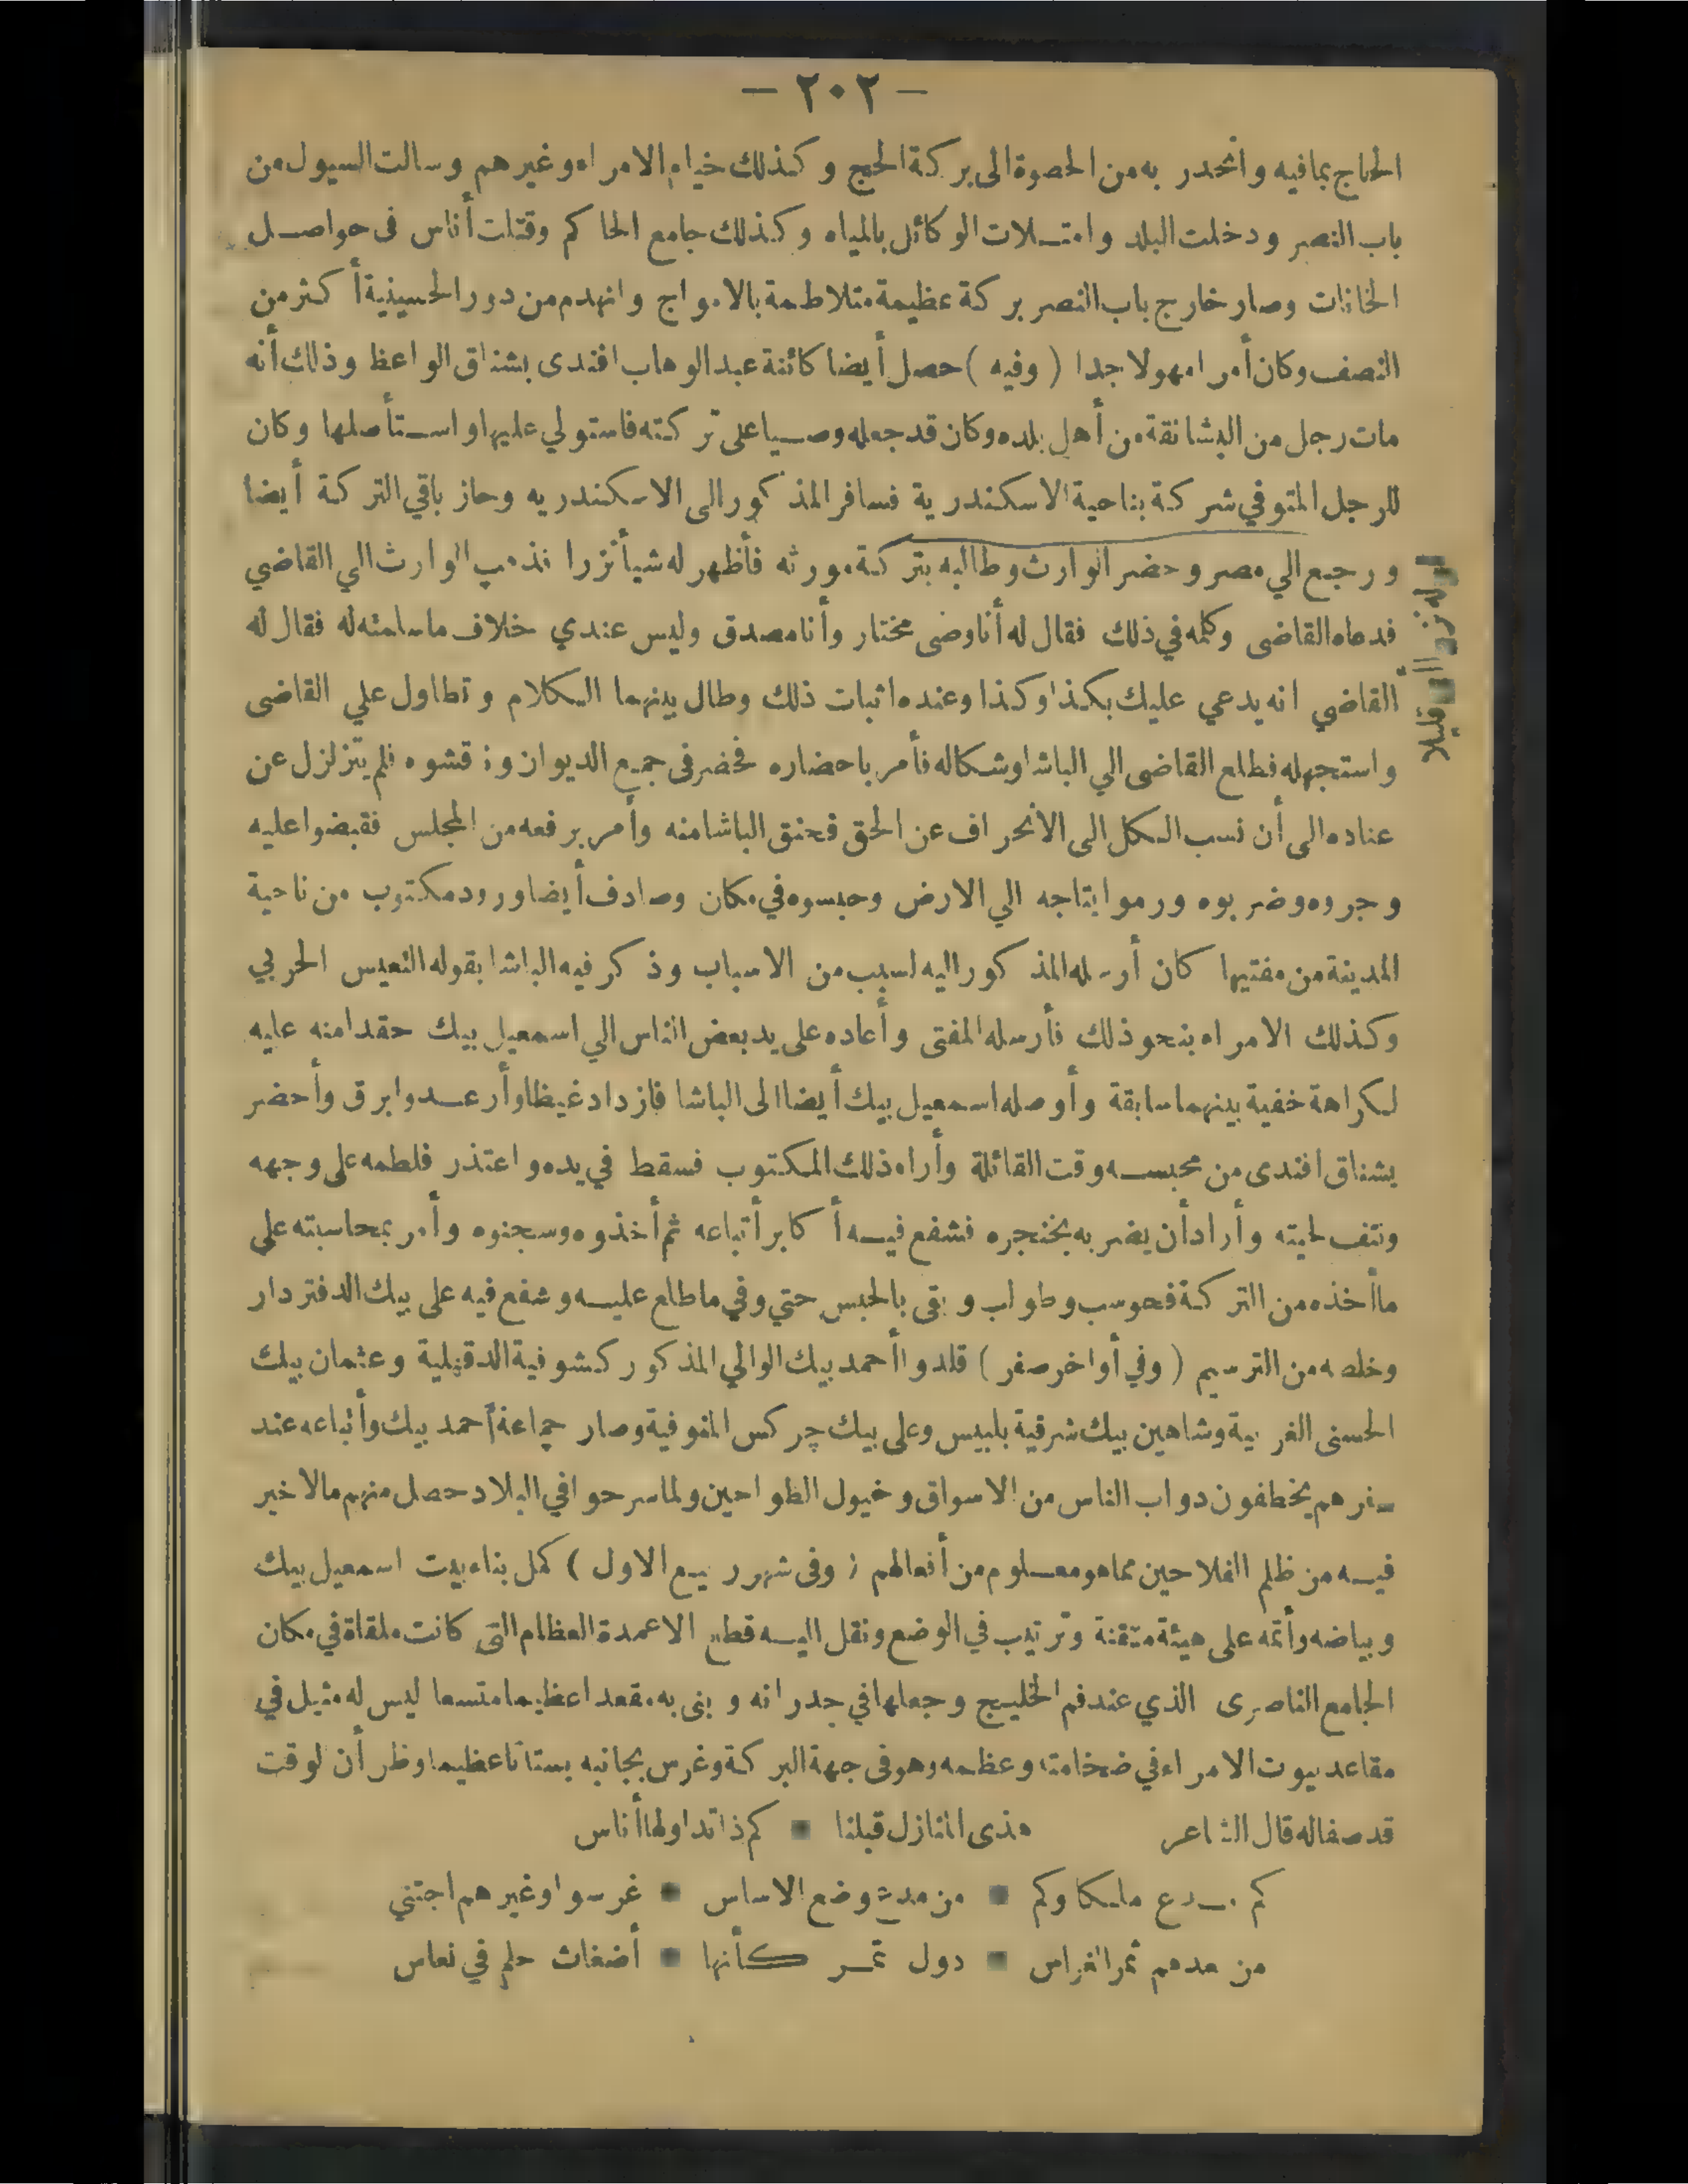 — ٢٠٢ —
الحاج بمافيه وانحدر به من الحصوة الى بركة الحج وكذلك خيام الامراء وغيرهم وسالت السيول من
باب النصر ودخلت البلد وامتلات الوكائل بالمياه وكذلك جامع الحاكم وقتلت أناس فى حواصل
الخانات وصار خارج باب النصر بركة عظيمة متلاطمة بالامواج وانهدم من دور الحسينية أكثر من
النصف وكان أمرا مهولا جدا ( وفيه ) حصل أيضا كائنة عبد الوهاب افندى بشناق الواعظ وذلك أنه
مات رجل من البشانقة من أهل بلده وكان قد جعله وصيا على تركته فاستولي عليها واستأصلها وكان
للرجل المتوفي شركة بناحية الاسكندرية فسافر المذكور الى الاسكندريه وحاز باقي التركة أيضا
ورجع الي مصر وحضر الوارث وطالبه بتركة مورثه فأظهر له شيأ نزرا فذهب الوارث الي القاضي
فدعاه القاضى وكلمه في ذلك فقال له أنا وصى مختار وأنا مصدق وليس عندي خلاف ما سلمته له فقال له
القاضي انه يدعي عليك بكذا وكذا وعنده اثبات ذلك وطال بينهما الكلام وتطاول علي القاضى
واستجهله فطلع القاضى الي الباشا وشكاله فأمر باحضاره فحضر فى جميع الديوان وناقشوه فلم يتزلزل عن
عناده الى أن نسب الكل الى الانحراف عن الحق فحنق الباشا منه وأمر برفعه من المجلس فقبضوا عليه
وجروه وضربوه ورموا بتاجه الي الارض وحبسوه في مكان وصادف أيضا ورود مكتوب من ناحية
المدينة من مفتيها كان أرسله المذكور اليه لسبب من الاسباب وذكر فيه الباشا بقوله التعيس الحربي
وكذلك الامراء بنحو ذلك فأرسله المفتى وأعاده على يد بعض الناس الي اسمعيل بيك حقدا منه عليه
لكراهة خفية بينهما سابقة وأوصله اسمعيل بيك أيضا الى الباشا فازداد غيظا وأرعد وابرق وأحضر
بشناق افندى من محبسه وقت القائلة وأراه ذلك المكتوب فسقط في يده واعتذر فلطمه على وجهه
ونتف لحيته وأراد أن يضربه بخنجره فشفع فيه أكابر أتباعه ثم أخذوه وسجنوه وأمر بمحاسبته على
ما أخذه من التركة فحوسب وطولب وبقى بالحبس حتي وفي ما طلع عليه وشفع فيه على بيك الدفتردار
وخلصه من الترسيم ( وفي أواخر صفر ) قلدوا أحمد بيك الوالي المذكور كشوفية الدقهلية وعثمان بيك
الحسنى الغربية وشاهين بيك شرقية بلبيس وعلى بيك چركس المنوفية وصار جماعة أحمد بيك وأتباعه عند
سفرهم يخطفون دواب الناس من الاسواق وخيول الطواحين ولما سرحوا في البلاد حصل منهم مالا خير
فيه من ظلم الفلاحين مماهو معلوم من أفعالهم ( وفى شهر ربيع الاول ) كمل بناء بيت اسمعيل بيك
وبياضه وأتمه على هيئة متقنة وترتيب في الوضع ونقل اليه قطع الاعمدة العظام التى كانت ملقاة في مكان
الجامع الناصرى الذي عند فم الخليج وجعلها في جدرانه وبنى به مقعدا عظيما متسعا ليس له مثيل في
مقاعد بيوت الامراء في ضخامته وعظمه وهو فى جهة البركة وغرس بجانبه بستانا عظيما وظن أن الوقت
قد صفاله قال الشاعر هذى المنازل قبلنا ■ كم ذا تداولها أناس
كم مدع ملكا وكم ■ من مدع وضع الاساس ■ غرسوا وغيرهم اجتني
من بعدهم ثمر الغراس ■ دول تمر كأنها ■ أضغاث حلم في نعاس